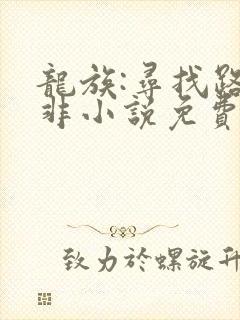 龍族:尋找路
非小說免費
致力於螺旋升